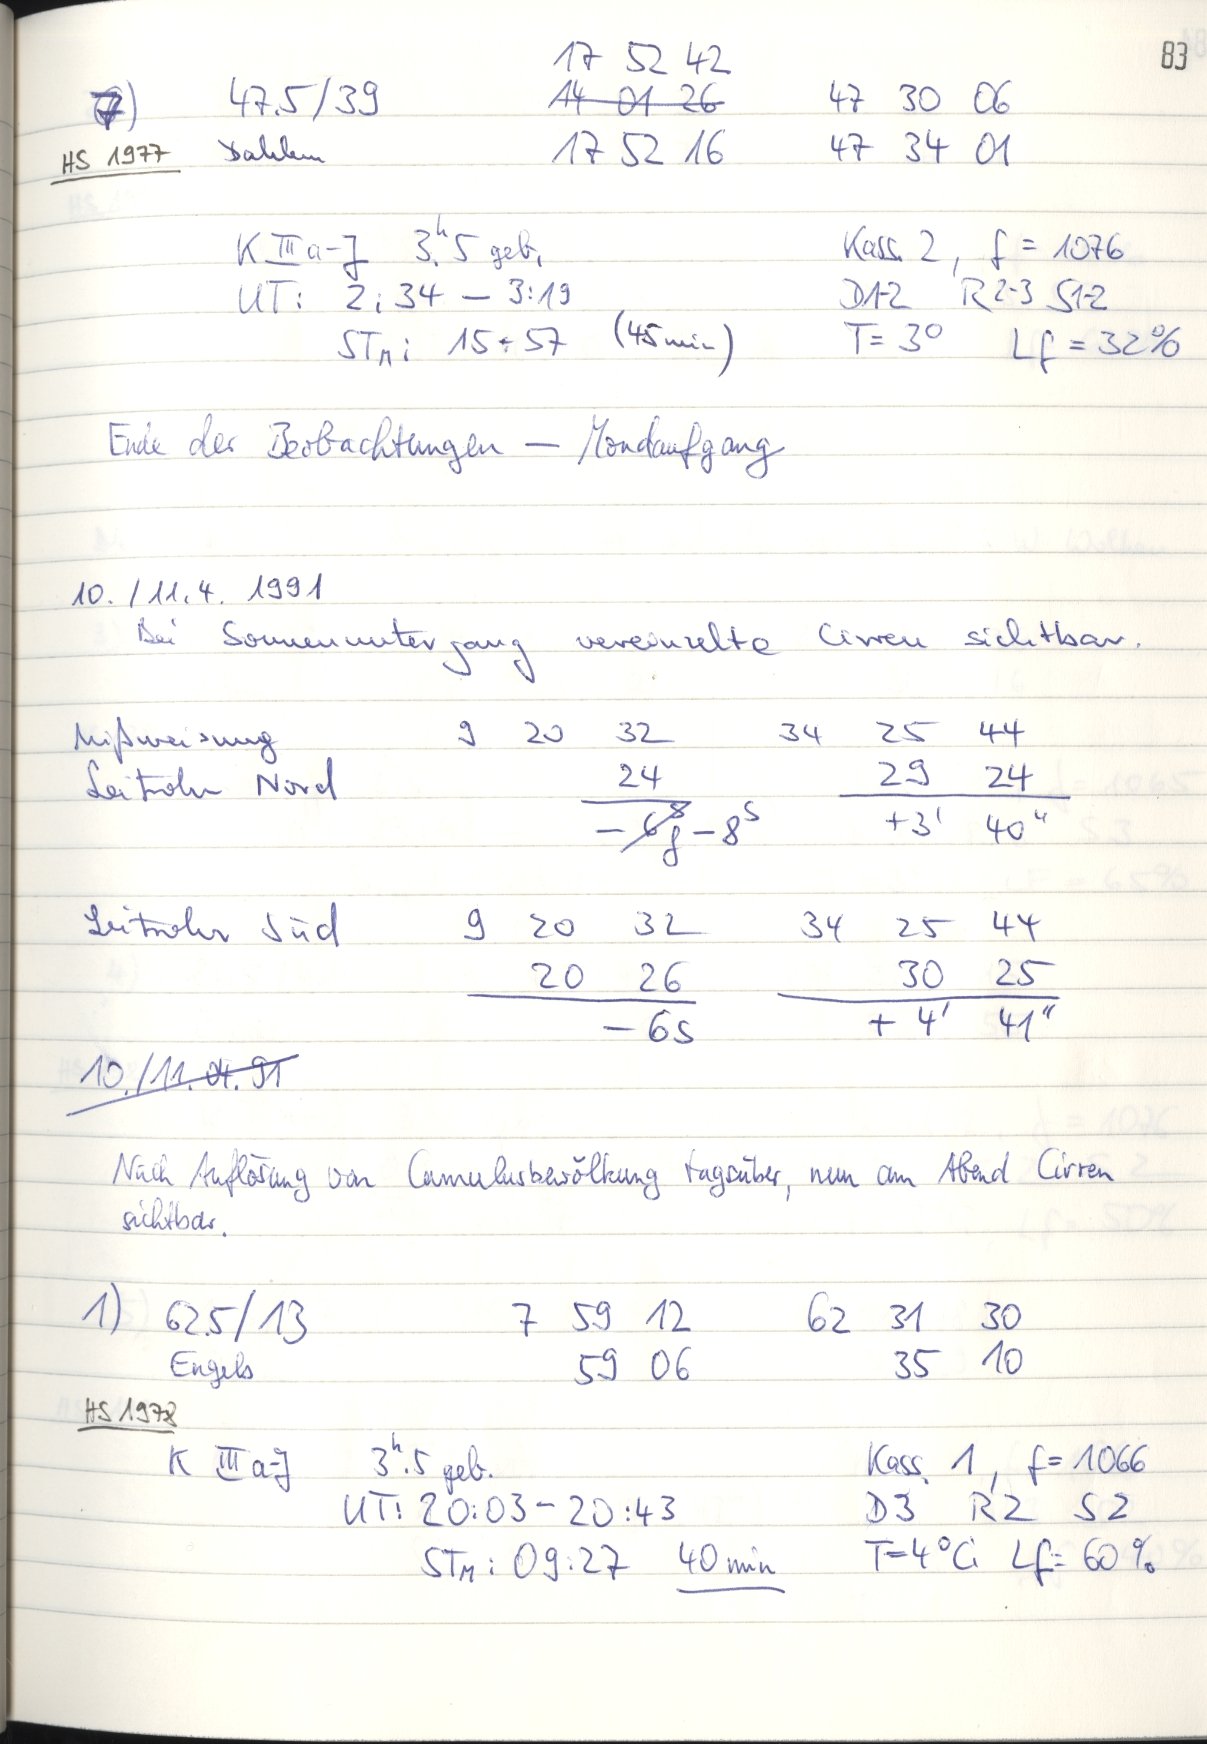 83
17 52 42
7) 47.5/39 14 01 26 47 30 06
HS 1977 Dahlem 17 52 16 47 34 01
K III a-J 3h.5 geb. Kass. 2, f = 1076
UT: 2:34 – 3:19 D1-2 R2-3 S1-2
STM: 15:57 (45 min) T= 3° Lf = 32%
Ende der Beobachtungen – Mondaufgang
10./11.4. 1991
Bei Sonnenuntergang vereinzelte Cirren sichtbar.
Mißweisung 9 20 32 34 25 44
Leitrohr Nord 24 29 24
– 8s +3' 40"
Leitrohr Süd 9 20 32 34 25 44
20 26 30 25
– 6s + 4' 41"
10./11.04.91
Nach Auflösung von Cumulusbewölkung tagsüber, nun am Abend Cirren
sichtbar.
1) 62.5/13 7 59 12 62 31 30
Engels 59 06 35 10
HS 1978
K III a-J 3h.5 geb. Kass. 1, f= 1066
UT: 20:03 – 20:43 D3 R2 S2
STM: 09:27 40 min T=4°C; Lf= 60%